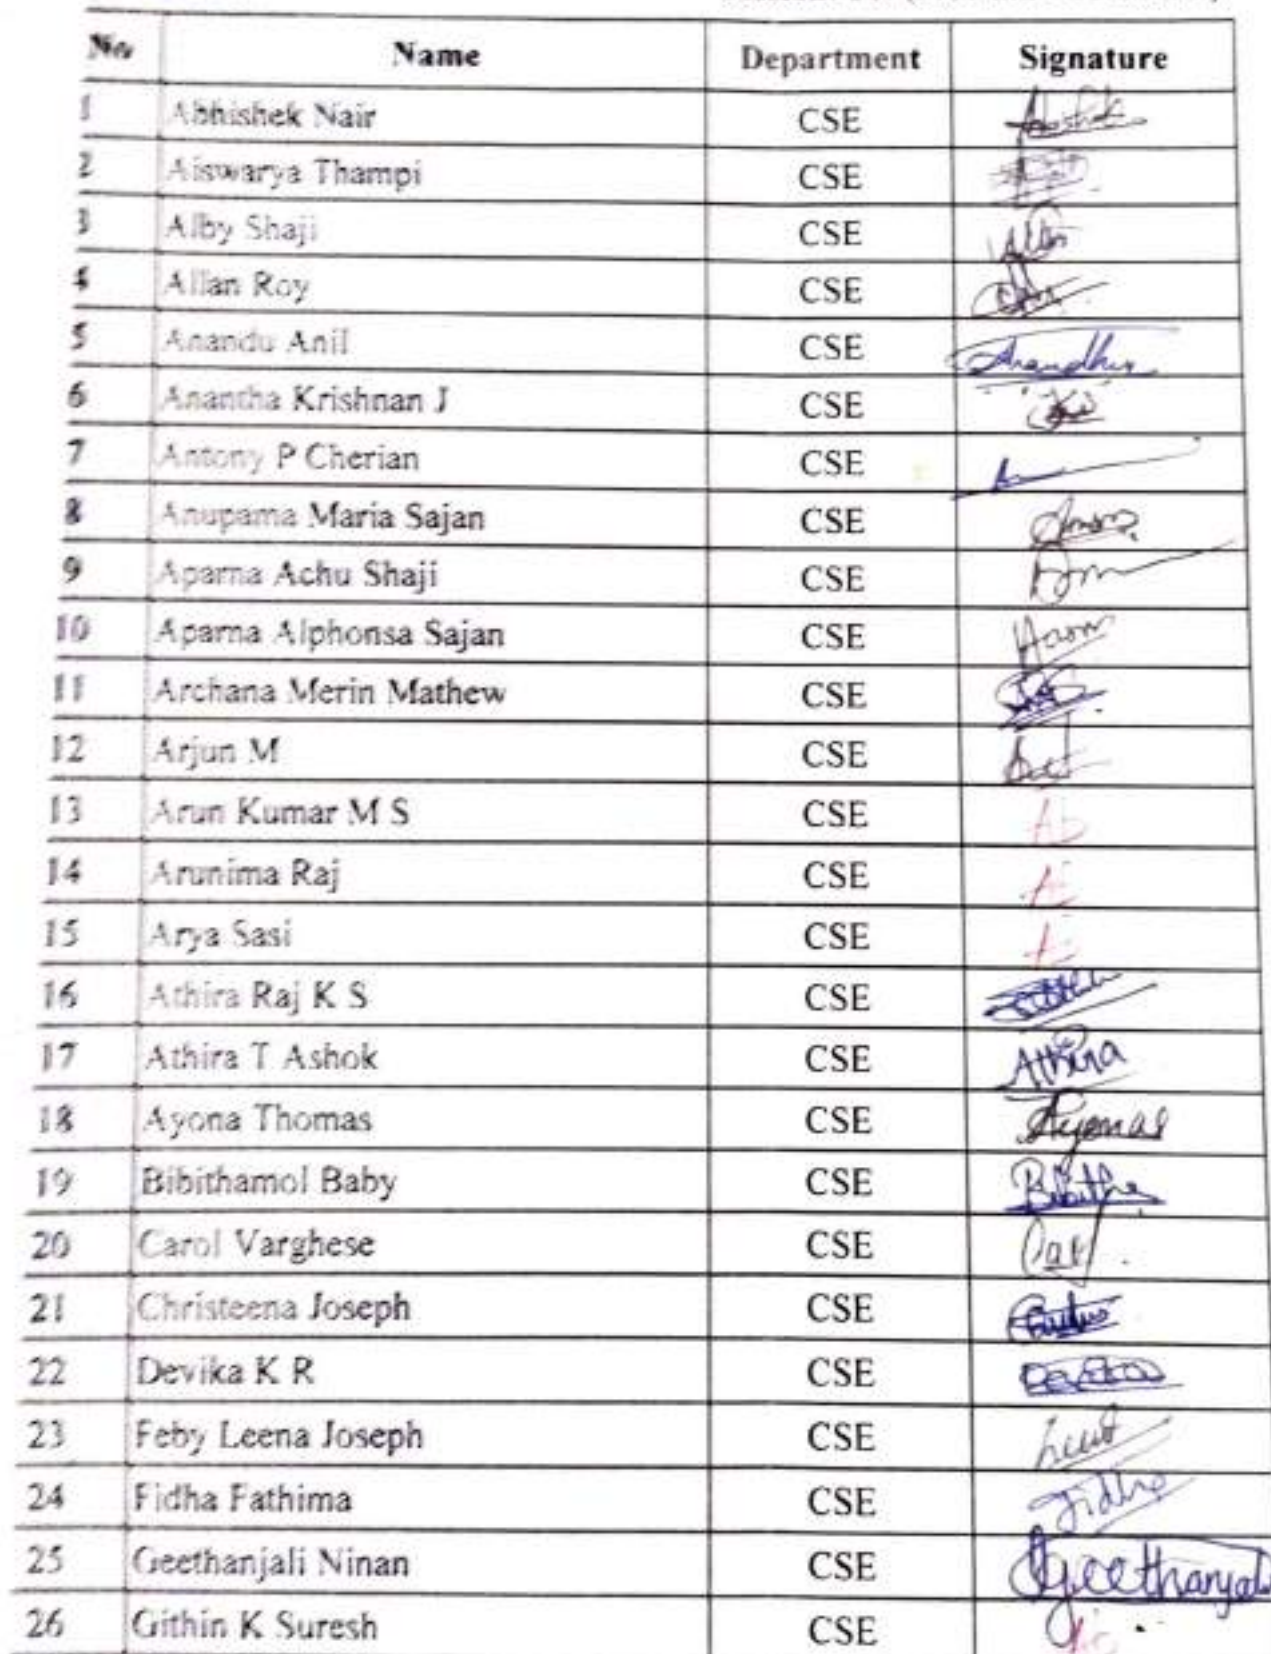 No Name Department Signature
1 Abhishek Nair CSE
2 Aiswarya Thampi CSE
3 Alby Shaji CSE
4 Allan Roy CSE
5 Anandu Anil CSE Anandhu
6 Anantha Krishnan J CSE
7 Antony P Cherian CSE
8 Anupama Maria Sajan CSE
9 Aparna Achu Shaji CSE
10 Aparna Alphonsa Sajan CSE
11 Archana Merin Mathew CSE
12 Arjun M CSE
13 Arun Kumar M S CSE Ab
14 Arunima Raj CSE
15 Arya Sasi CSE
16 Athira Raj K S CSE
17 Athira T Ashok CSE Athira
18 Ayona Thomas CSE
19 Bibithamol Baby CSE Bibitha
20 Carol Varghese CSE
21 Christeena Joseph CSE
22 Devika K R CSE Devika
23 Feby Leena Joseph CSE
24 Fidha Fathima CSE Fidha
25 Geethanjali Ninan CSE Geethanjali
26 Githin K Suresh CSE